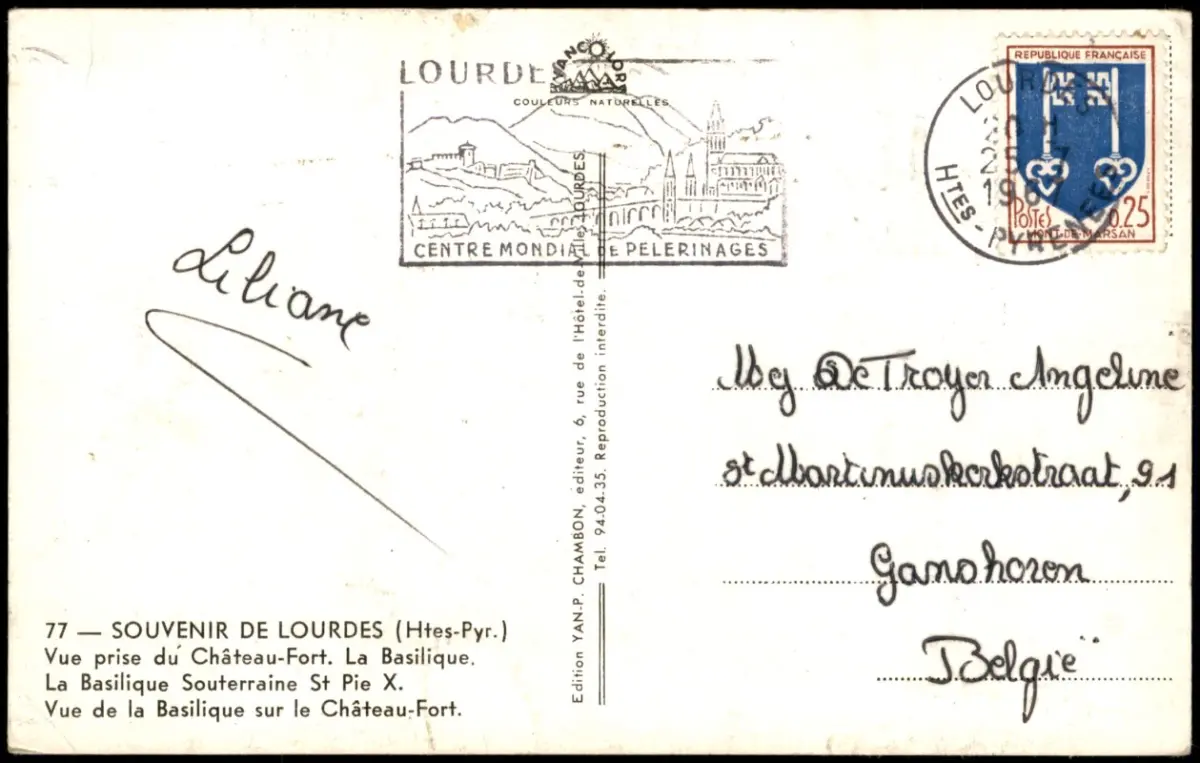 LOURDES
YANCOLOR
COULEURS NATURELLES
CENTRE MONDIAL DE PELERINAGES
REPUBLIQUE FRANÇAISE
POSTES 0.25
MONT-DE-MARSAN
LOURDES
25-7
1967
HTES-PYRENEES
Liliane
Mej De Troyer Angeline
st Martinuskerkstraat, 91
Ganshoren
België
Edition YAN-P. CHAMBON, éditeur, 6, rue de l'Hôtel-de-Ville, LOURDES.
Tel. 94-04-35. Reproduction interdite.
77 — SOUVENIR DE LOURDES (Htes-Pyr.)
Vue prise du Château-Fort. La Basilique.
La Basilique Souterraine St Pie X.
Vue de la Basilique sur le Château-Fort.